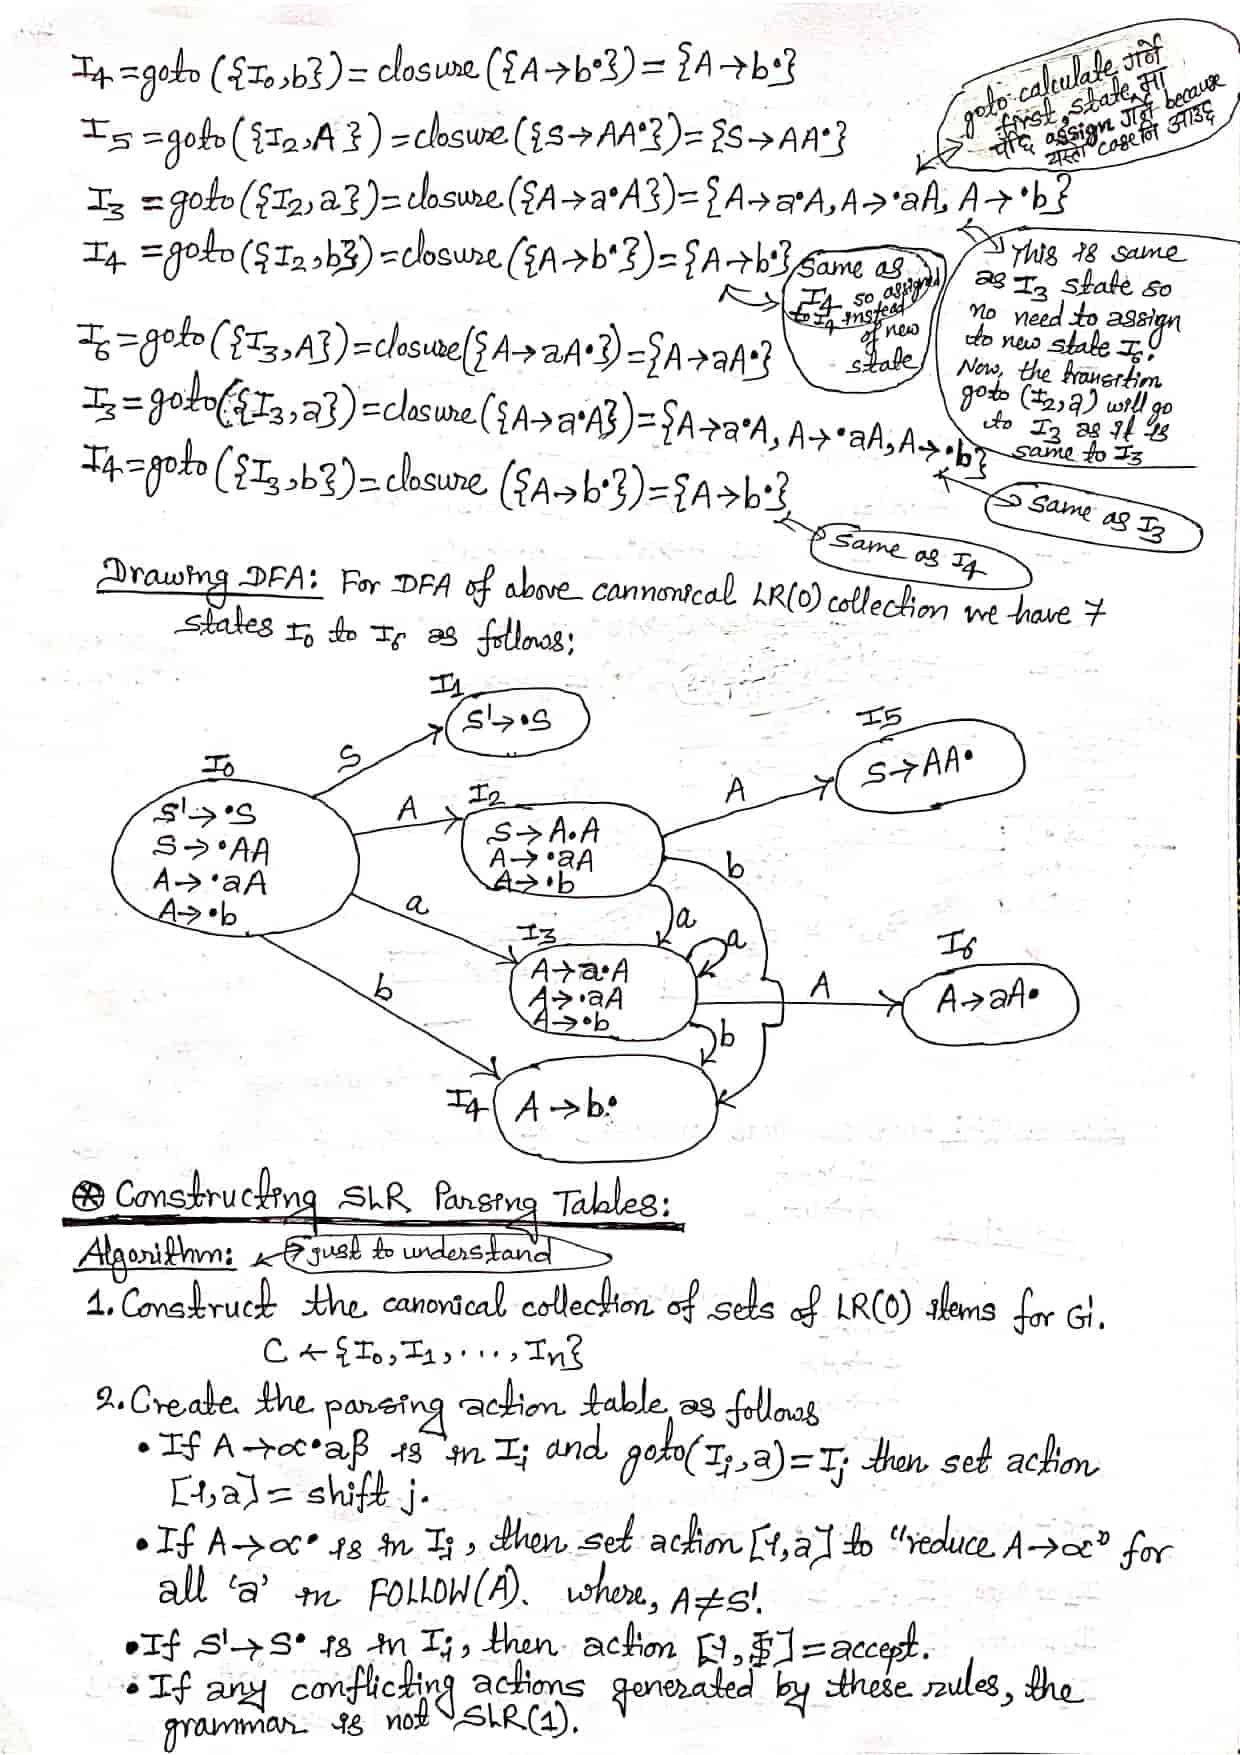 I4 = goto ({I0,b}) = closure ({A→b•}) = {A→b•}
I5 = goto ({I2,A}) = closure ({S→AA•}) = {S→AA•}
goto calculate गर्ने
first state मा
पनि assign गर्ने because
यस्तो case नि आउँछ
I3 = goto ({I2,a}) = closure ({A→a•A}) = {A→a•A, A→•aA, A→•b}
I4 = goto ({I2,b}) = closure ({A→b•}) = {A→b•}
Same as
I4 so assigned
to I4 instead
of new
state
This is same
as I3 state so
no need to assign
to new state I6.
Now, the transition
goto (I2,a) will go
to I3 as it is
same to I3
I6 = goto ({I3,A}) = closure ({A→aA•}) = {A→aA•}
I3 = goto ({I3,a}) = closure ({A→a•A}) = {A→a•A, A→•aA, A→•b}
I4 = goto ({I3,b}) = closure ({A→b•}) = {A→b•}
Same as I3
Same as I4
Drawing DFA: For DFA of above cannonical LR(0) collection we have 7
states I0 to I6 as follows;
I1
S'→•S
I5
S→AA•
I0
S'→•S
S→•AA
A→•aA
A→•b
S
A
a
b
I2
S→A•A
A→•aA
A→•b
A
b
a
I3
A→a•A
A→•aA
A→•b
a
A
b
I6
A→aA•
I4
A→b•
⊛ Constructing SLR Parsing Tables:
Algorithm: just to understand
1. Construct the canonical collection of sets of LR(0) items for G'.
C ← {I0, I1, ..., In}
2. Create the parsing action table as follows
• If A→∝•aβ is in Ii and goto(Ii,a) = Ij then set action
[i,a] = shift j.
• If A→∝• is in Ii, then set action [i,a] to "reduce A→∝" for
all 'a' in FOLLOW(A). where, A≠S'.
• If S'→S• is in Ii, then action [i,$] = accept.
• If any conflicting actions generated by these rules, the
grammar is not SLR(1).